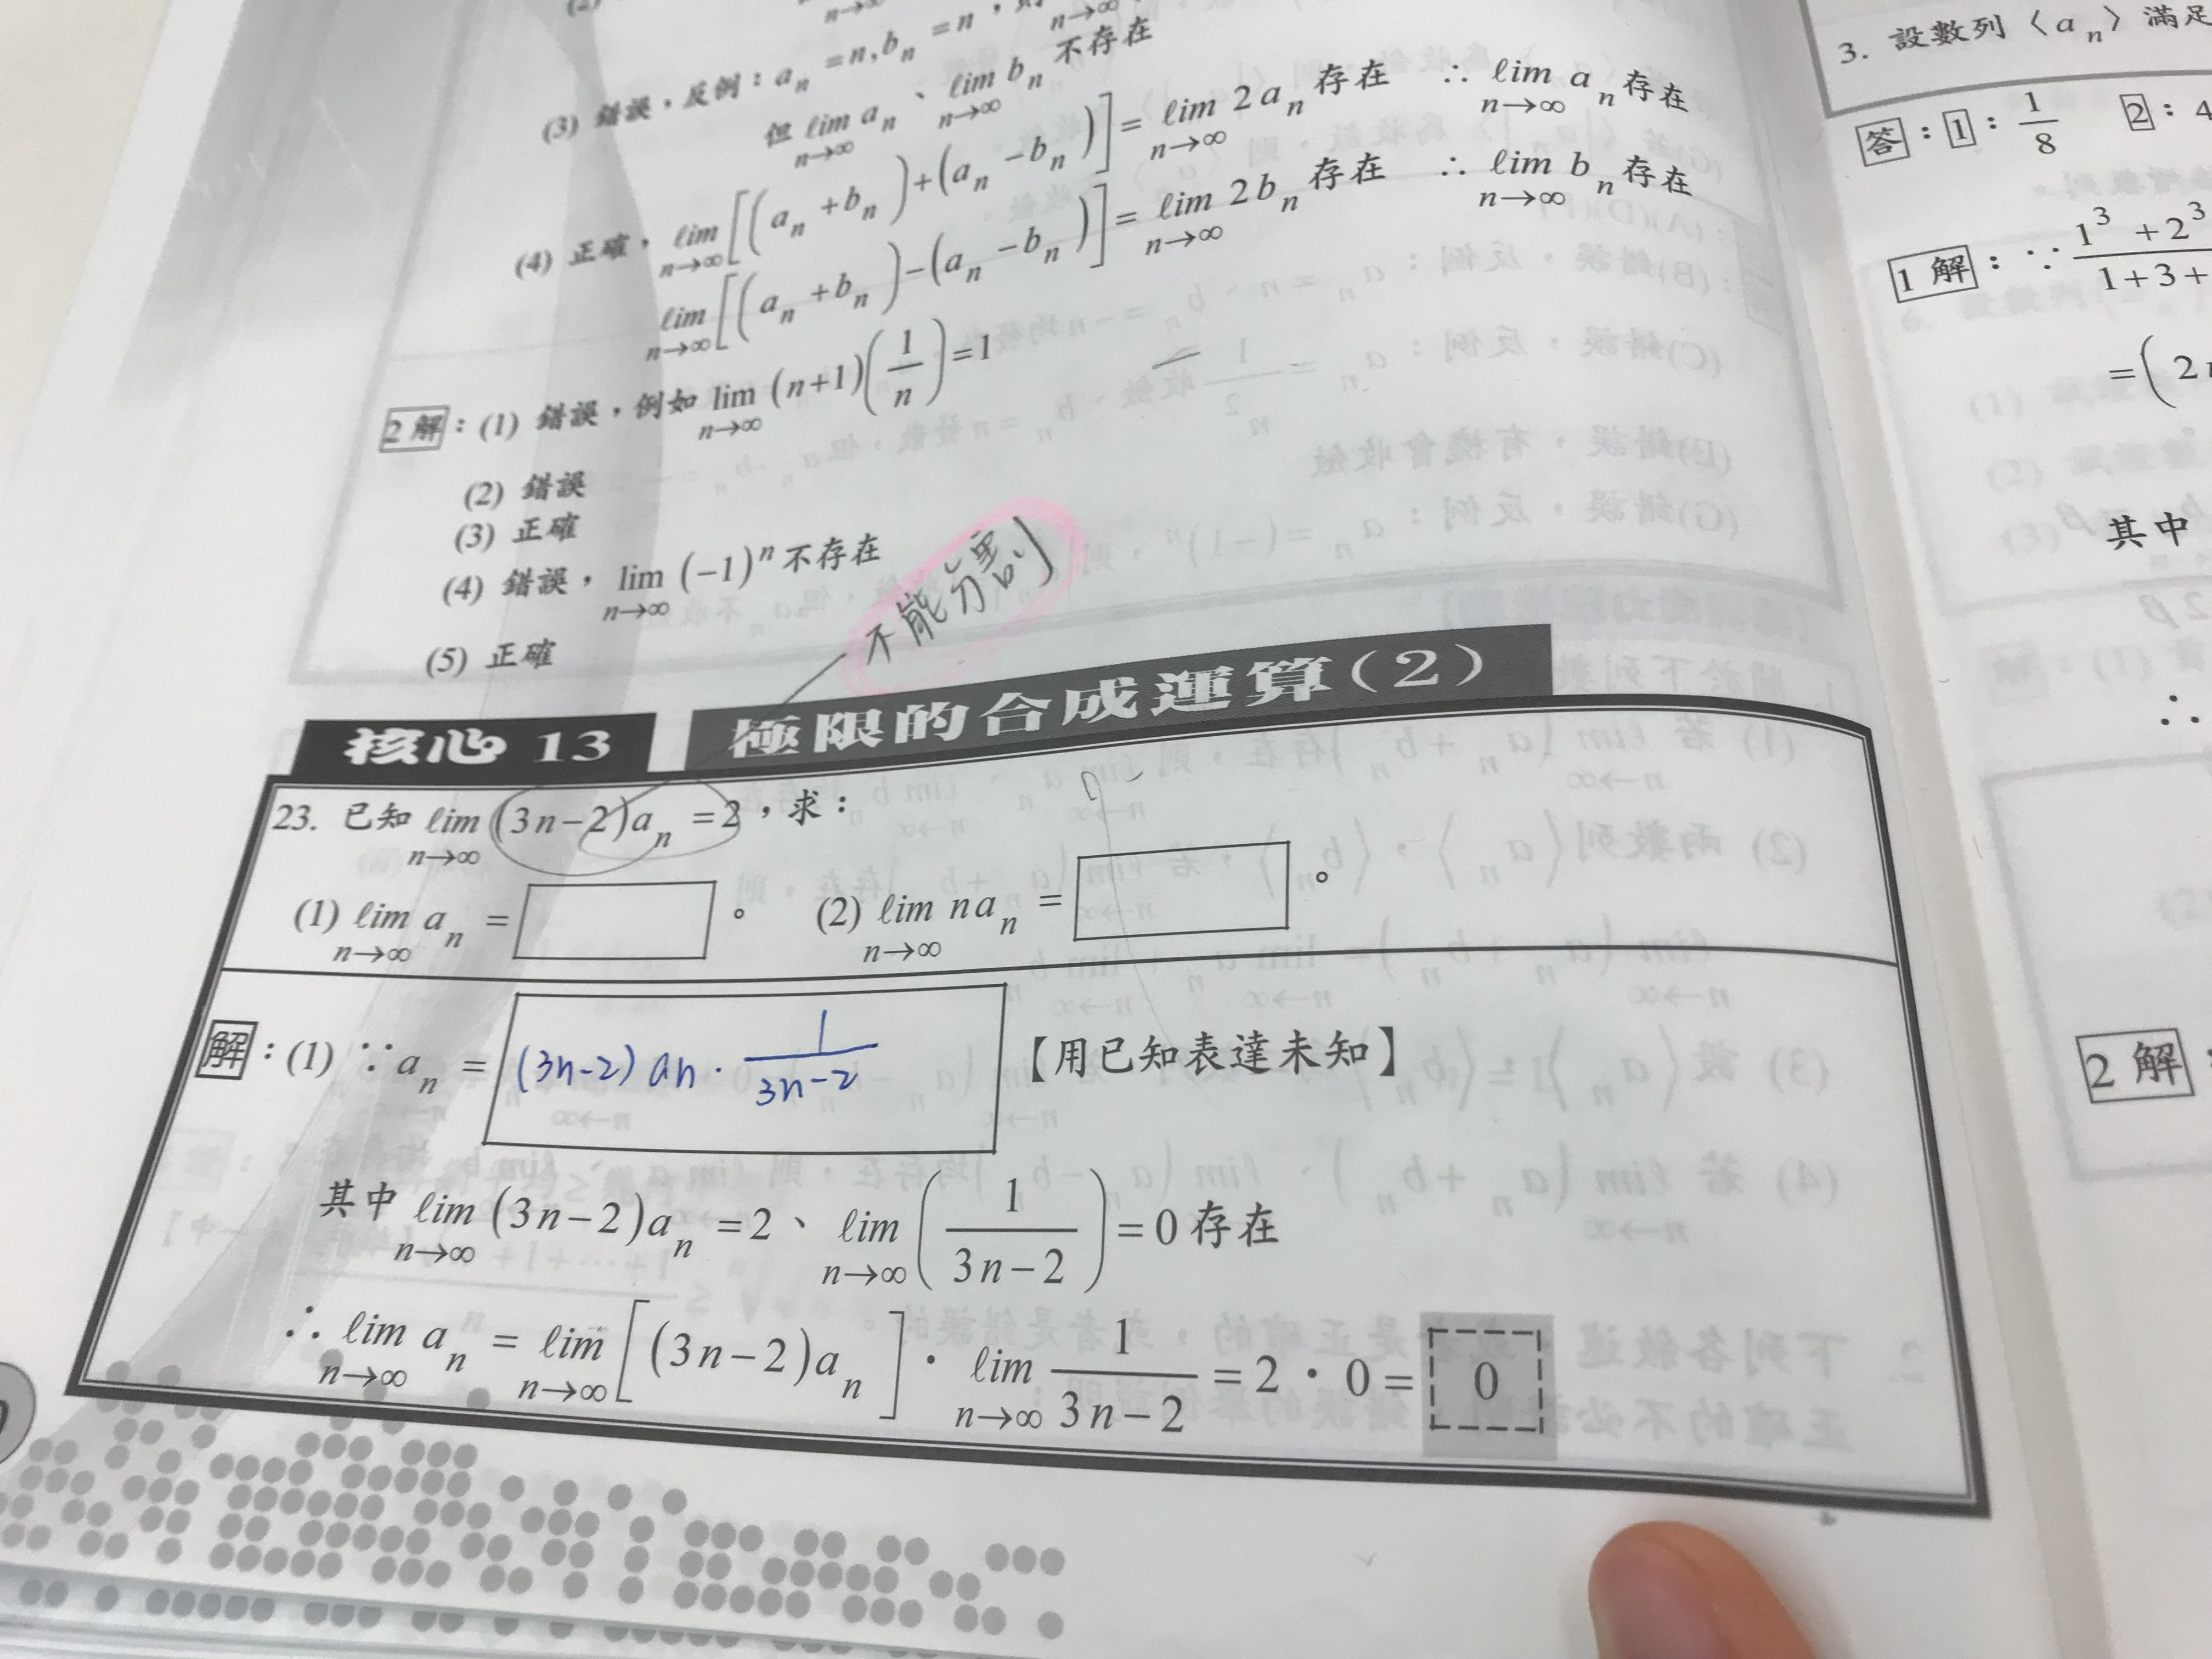 (3) 錯誤，反例：a_n = n, b_n = n，
但 lim_{n→∞} a_n、lim_{n→∞} b_n 不存在
(4) 正確，lim_{n→∞} [(a_n + b_n) + (a_n − b_n)] = lim_{n→∞} 2a_n 存在 ∴ lim_{n→∞} a_n 存在
lim_{n→∞} [(a_n + b_n) − (a_n − b_n)] = lim_{n→∞} 2b_n 存在 ∴ lim_{n→∞} b_n 存在
2 解：(1) 錯誤，例如 lim_{n→∞} (n+1)(1/n) = 1
(2) 錯誤
(3) 正確
(4) 錯誤，lim_{n→∞} (−1)^n 不存在
(5) 正確
不能分割
核心 13 極限的合成運算(2)
23. 已知 lim_{n→∞} (3n−2)a_n = 2，求：
(1) lim_{n→∞} a_n = 。 (2) lim_{n→∞} na_n = 。
解：(1) ∵ a_n = (3n−2) an · 1/(3n−2) 【用已知表達未知】
其中 lim_{n→∞} (3n−2)a_n = 2、lim_{n→∞} (1/(3n−2)) = 0 存在
∴ lim_{n→∞} a_n = lim_{n→∞} [(3n−2)a_n] · lim_{n→∞} 1/(3n−2) = 2 · 0 = 0
3. 設數列〈a_n〉滿足
答：1：1/8 2：4
1 解：∵ (1³ + 2³)/(1+3+
= (2
其中
∴
2 解：